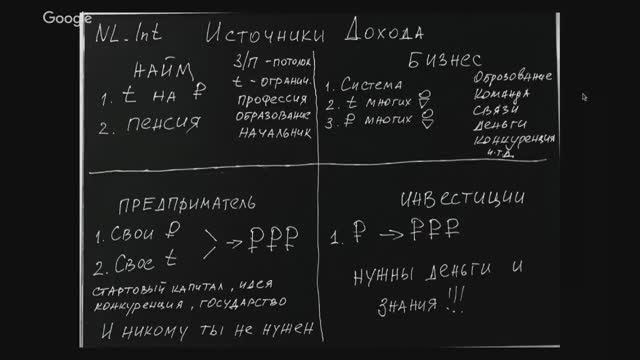 Google
NL-Int Источники Дохода
НАЙМ
1. t на ₽
2. ПЕНСИЯ
З/П - потолок
t - огранич.
ПРОФЕССИЯ
ОБРАЗОВАНИЕ
НАЧАЛЬНИК
БИЗНЕС
1. Система
2. t многих
3. ₽ многих
Оброзование
Команда
Связи
Деньги
Конкуренция
и.т.д.
ПРЕДПРИМАТЕЛЬ
1. Свои ₽
2. Свое t
→ ₽₽₽
СТАРТОВЫЙ КАПИТАЛ, ИДЕЯ
КОНКУРЕНЦИЯ, ГОСУДАРСТВО
И никому ты не нужен
ИНВЕСТИЦИИ
1. ₽ → ₽₽₽
НУЖНЫ ДЕНЬГИ И
ЗНАНИЯ!!!